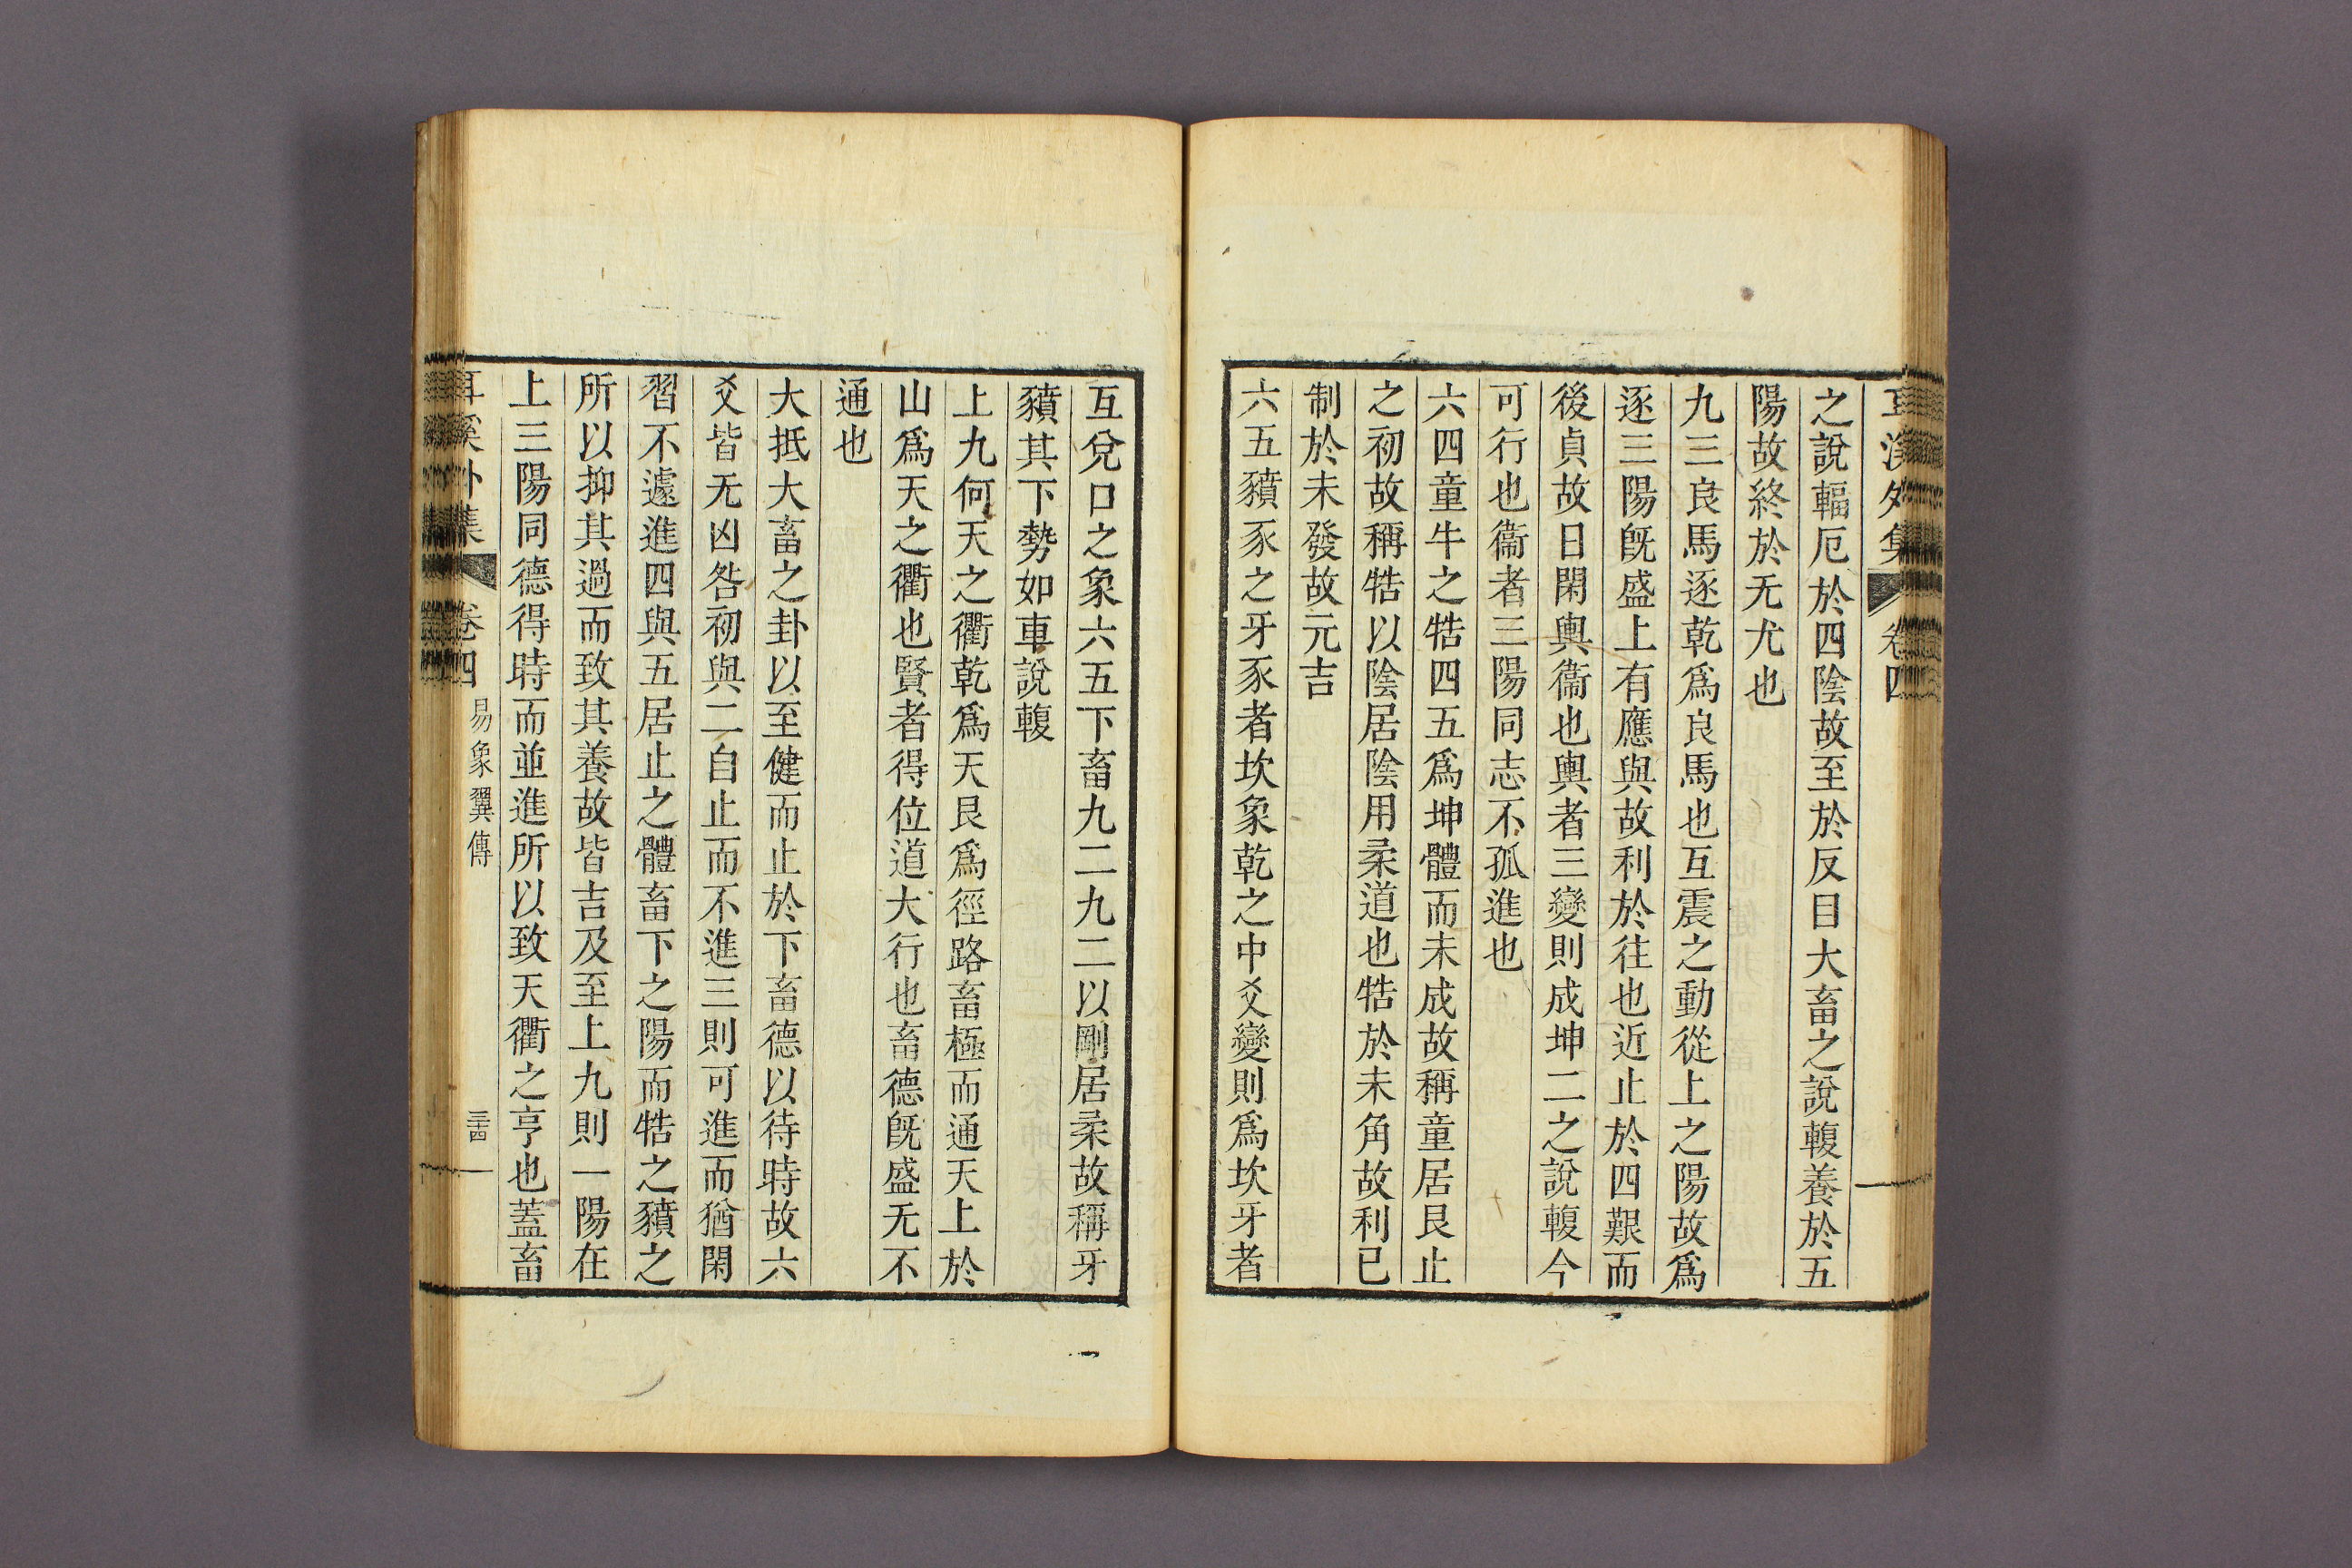 耳溪外集 卷四
之說輻厄於四陰故至於反目大畜之說輹養於五
陽故終於无尤也
九三良馬逐乾爲良馬也互震之動從上之陽故爲
逐三陽旣盛上有應與故利於往也近止於四艱而
後貞故日閑輿衞也輿者三變則成坤二之說輹今
可行也衞者三陽同志不孤進也
六四童牛之牿四五爲坤體而未成故稱童居艮止
之初故稱牿以陰居陰用柔道也牿於未角故利已
制於未發故元吉
六五豶豕之牙豕者坎象乾之中爻變則爲坎牙者
互兌口之象六五下畜九二九二以剛居柔故稱牙
豶其下勢如車說輹
上九何天之衢乾爲天艮爲徑路畜極而通天上於
山爲天之衢也賢者得位道大行也畜德旣盛无不
通也
大抵大畜之卦以至健而止於下畜德以待時故六
爻皆无凶咎初與二自止而不進三則可進而猶閑
習不遽進四與五居止之體畜下之陽而牿之豶之
所以抑其過而致其養故皆吉及至上九則一陽在
上三陽同德得時而並進所以致天衢之亨也蓋畜
耳溪外集 卷四 易象翼傳 三十四